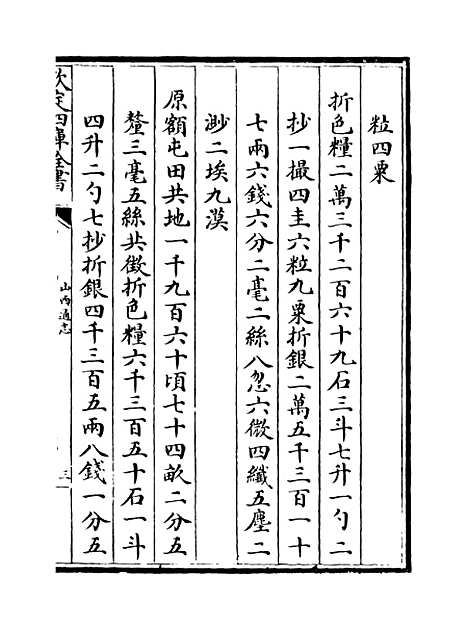 粒四粟
折色糧二萬三千二百六十九石三斗七升一勺二
抄一撮四圭六粒九粟折銀二萬五千三百一十
七兩六錢六分二毫二絲八忽六微四纖五塵二
渺二埃九漠
原額屯田共地一千九百六十頃七十四畝二分五
釐三毫五絲共徵折色糧六千三百五十石一斗
四升二勺七抄折銀四千三百五兩八錢一分五
欽定四庫全書
山西通志
三